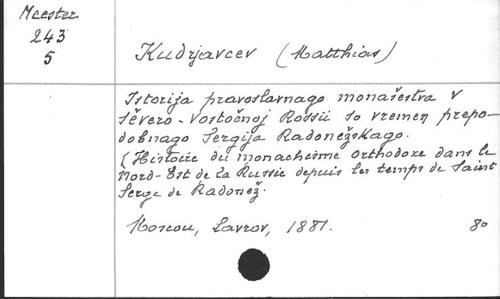 Mcester
243
5
Kudrjavcev (Matthias)
Istorija pravoslavnago monašestva v
sěvero-vostočnoj Rossii so vremen prepo-
dobnago Sergija Radonežskago.
(Histoire du monachisme orthodoxe dans le
Nord-Est de la Russie depuis les temps de Saint
Serge de Radonež.
Moscou, Lavrov, 1881. 80